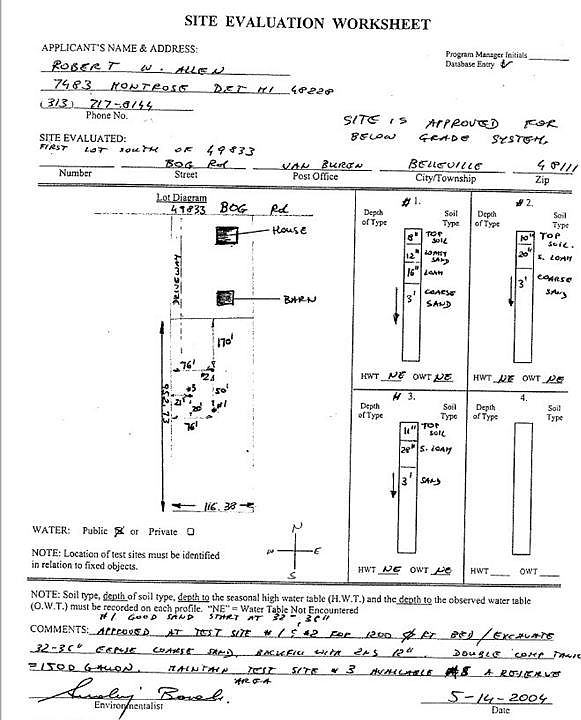 SITE EVALUATION WORKSHEET
APPLICANT'S NAME & ADDRESS:
Program Manager Initials
Database Entry
ROBERT W. ALLEN
7483 MONTROSE DET MI 48228
(313) 717-8144
Phone No.
SITE IS APPROVED FOR
BELOW GRADE SYSTEM
SITE EVALUATED:
FIRST LOT SOUTH OF 49833
BOG Rd VAN BUREN BELLEVILLE 48111
Number Street Post Office City/Township Zip
Lot Diagram
49833 BOG Rd
HOUSE
DRIVEWAY
BARN
170'
76'
#2
#3
50'
21'
20'
#1
76'
952.73
116.38
# 1.
Depth of Type
Soil Type
8" TOP SOIL
12" LOAMY SAND
16" LOAM
3' COARSE SAND
HWT NE OWT NE
# 2.
Depth of Type
Soil Type
10" TOP SOIL.
20" S. LOAM
3' COARSE SAND
HWT NE OWT NE
# 3.
Depth of Type
Soil Type
11" TOP SOIL
28" S. LOAM
3' SAND
HWT NE OWT NE
4.
Depth of Type
Soil Type
HWT OWT
WATER: Public or Private
N
W E
S
NOTE: Location of test sites must be identified
in relation to fixed objects.
NOTE: Soil type, depth of soil type, depth to the seasonal high water table (H.W.T.) and the depth to the observed water table
(O.W.T.) must be recorded on each profile. "NE" = Water Table Not Encountered
#1 GOOD SAND START AT 32", 36"
COMMENTS: APPROVED AT TEST SITE #1 & #2 FOR 1200 FT BED / EXCAVATE
32-36" EXPOSE COARSE SAND, BACKFILL WITH 2NS 12". DOUBLE COMP TANK
=1500 GALLON. MAINTAIN TEST SITE # 3 AVAILABLE AS A RESERVE
AREA
5-14-2004
Environmentalist
Date